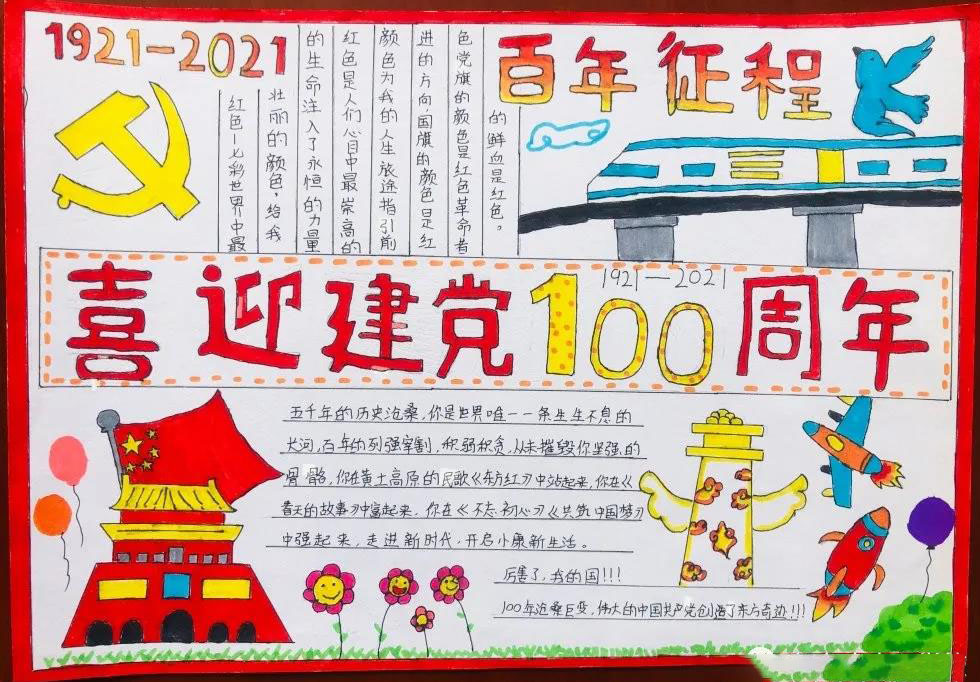 1921—2021
红色—七彩世界中最
壮丽的颜色，给我
的生命注入了永恒的力量
红色是人们心目中最崇高的
颜色为我的人生旅途指引前
进的方向国旗的颜色是红
色党旗的颜色是红色革命者
的鲜血是红色。
百年征程
1921—2021
喜迎建党100周年
五千年的历史沧桑，你是世界唯一一条生生不息的
大河，百年的列强宰割，积弱积贫，从未摧毁你坚强的
骨骼，你在黄土高原的民歌《东方红》中站起来，你在《
春天的故事》中富起来，你在《不忘初心》《共筑中国梦》
中强起来，走进新时代，开启小康新生活。
厉害了，我的国!!!
100年沧桑巨变，伟大的中国共产党创造了东方奇迹!!!